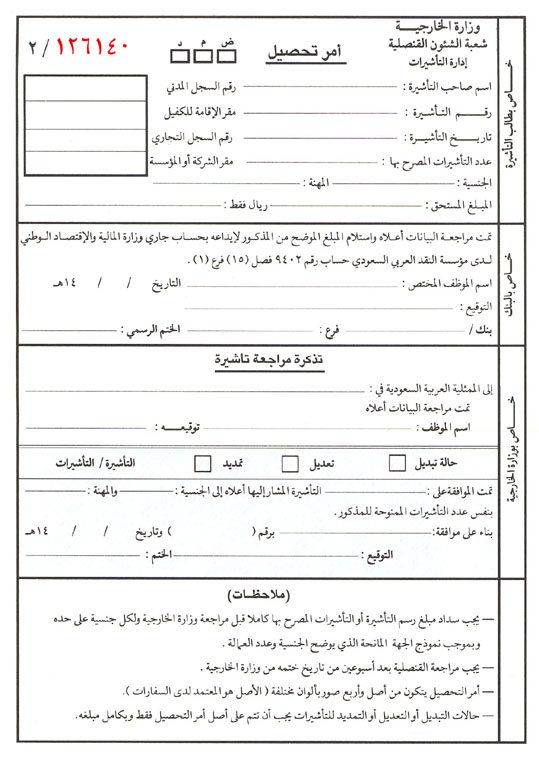 وزارة الخارجيـــة
شعبة الشئون القنصلية
إدارة التأشيرات
أمر تحصيل
ض م د
٢ / ١٢٦١٤٠
خاص بطالب التأشيرة
اسم صاحب التأشيرة : رقم السجل المدني
رقـــم التـأشـيـرة : مقر الإقامة للكفيل
تاريـــخ التأشيـرة : رقم السجل التجاري
عدد التأشيرات المصرح بها : مقر الشركة أو المؤسسة
الجنسية : المهنة :
المبلـغ المستحق : ريال فقط :
خـاص بالبنك
تمت مراجعـة البيانات أعـلاه واستلام المبلغ الموضح من المذكور لإيداعه بحساب جاري وزارة المالية والإقتصاد الوطني
لـدى مؤسسة النقد العربي السعودي حساب رقم ٩٤٠٢ فصل (١٥) فرع (١) .
اسم الموظف المختص : التاريخ / / ١٤هـ
التوقيع :
بنك / فرع : الختم الرسمي :
خـاص بوزارة الخارجية
تذكرة مراجعة تأشيرة
إلى الممثلية العربية السعودية في :
تمت مراجعة البيانات أعلاه
اسم الموظف : توقيعـــه :
حالة تبديل تعديل تمديد التأشيرة/ التأشيرات
تمـت الموافقة على : التأشيرة المشار إليها أعلاه إلى الجنسية : والمهنة :
بنفس عدد التأشيرات الممنوحة للمذكور .
بناء على موافقة : برقم ( ) وتاريخ / / ١٤هـ
التوقيع : الختم :
(ملاحظات)
— يجب سداد مبلغ رسم التأشيرة أو التأشيرات المصرح بها كاملا قبل مراجعة وزارة الخارجية ولكل جنسية على حده
وبموجب نموذج الجهة المانحة الذي يوضح الجنسية وعدد العمالة .
— يجب مراجعة القنصلية بعد أسبوعين من تاريخ ختمه من وزارة الخارجية .
— أمر التحصيل يتكون من أصل وأربع صور بألوان مختلفة ( الأصل هو المعتمد لدى السفارات ).
— حالات التبديل أو التعديل أو التمديد للتأشيرات يجب أن تتم على أصل أمر التحصيل فقط وبكامل مبلغه.